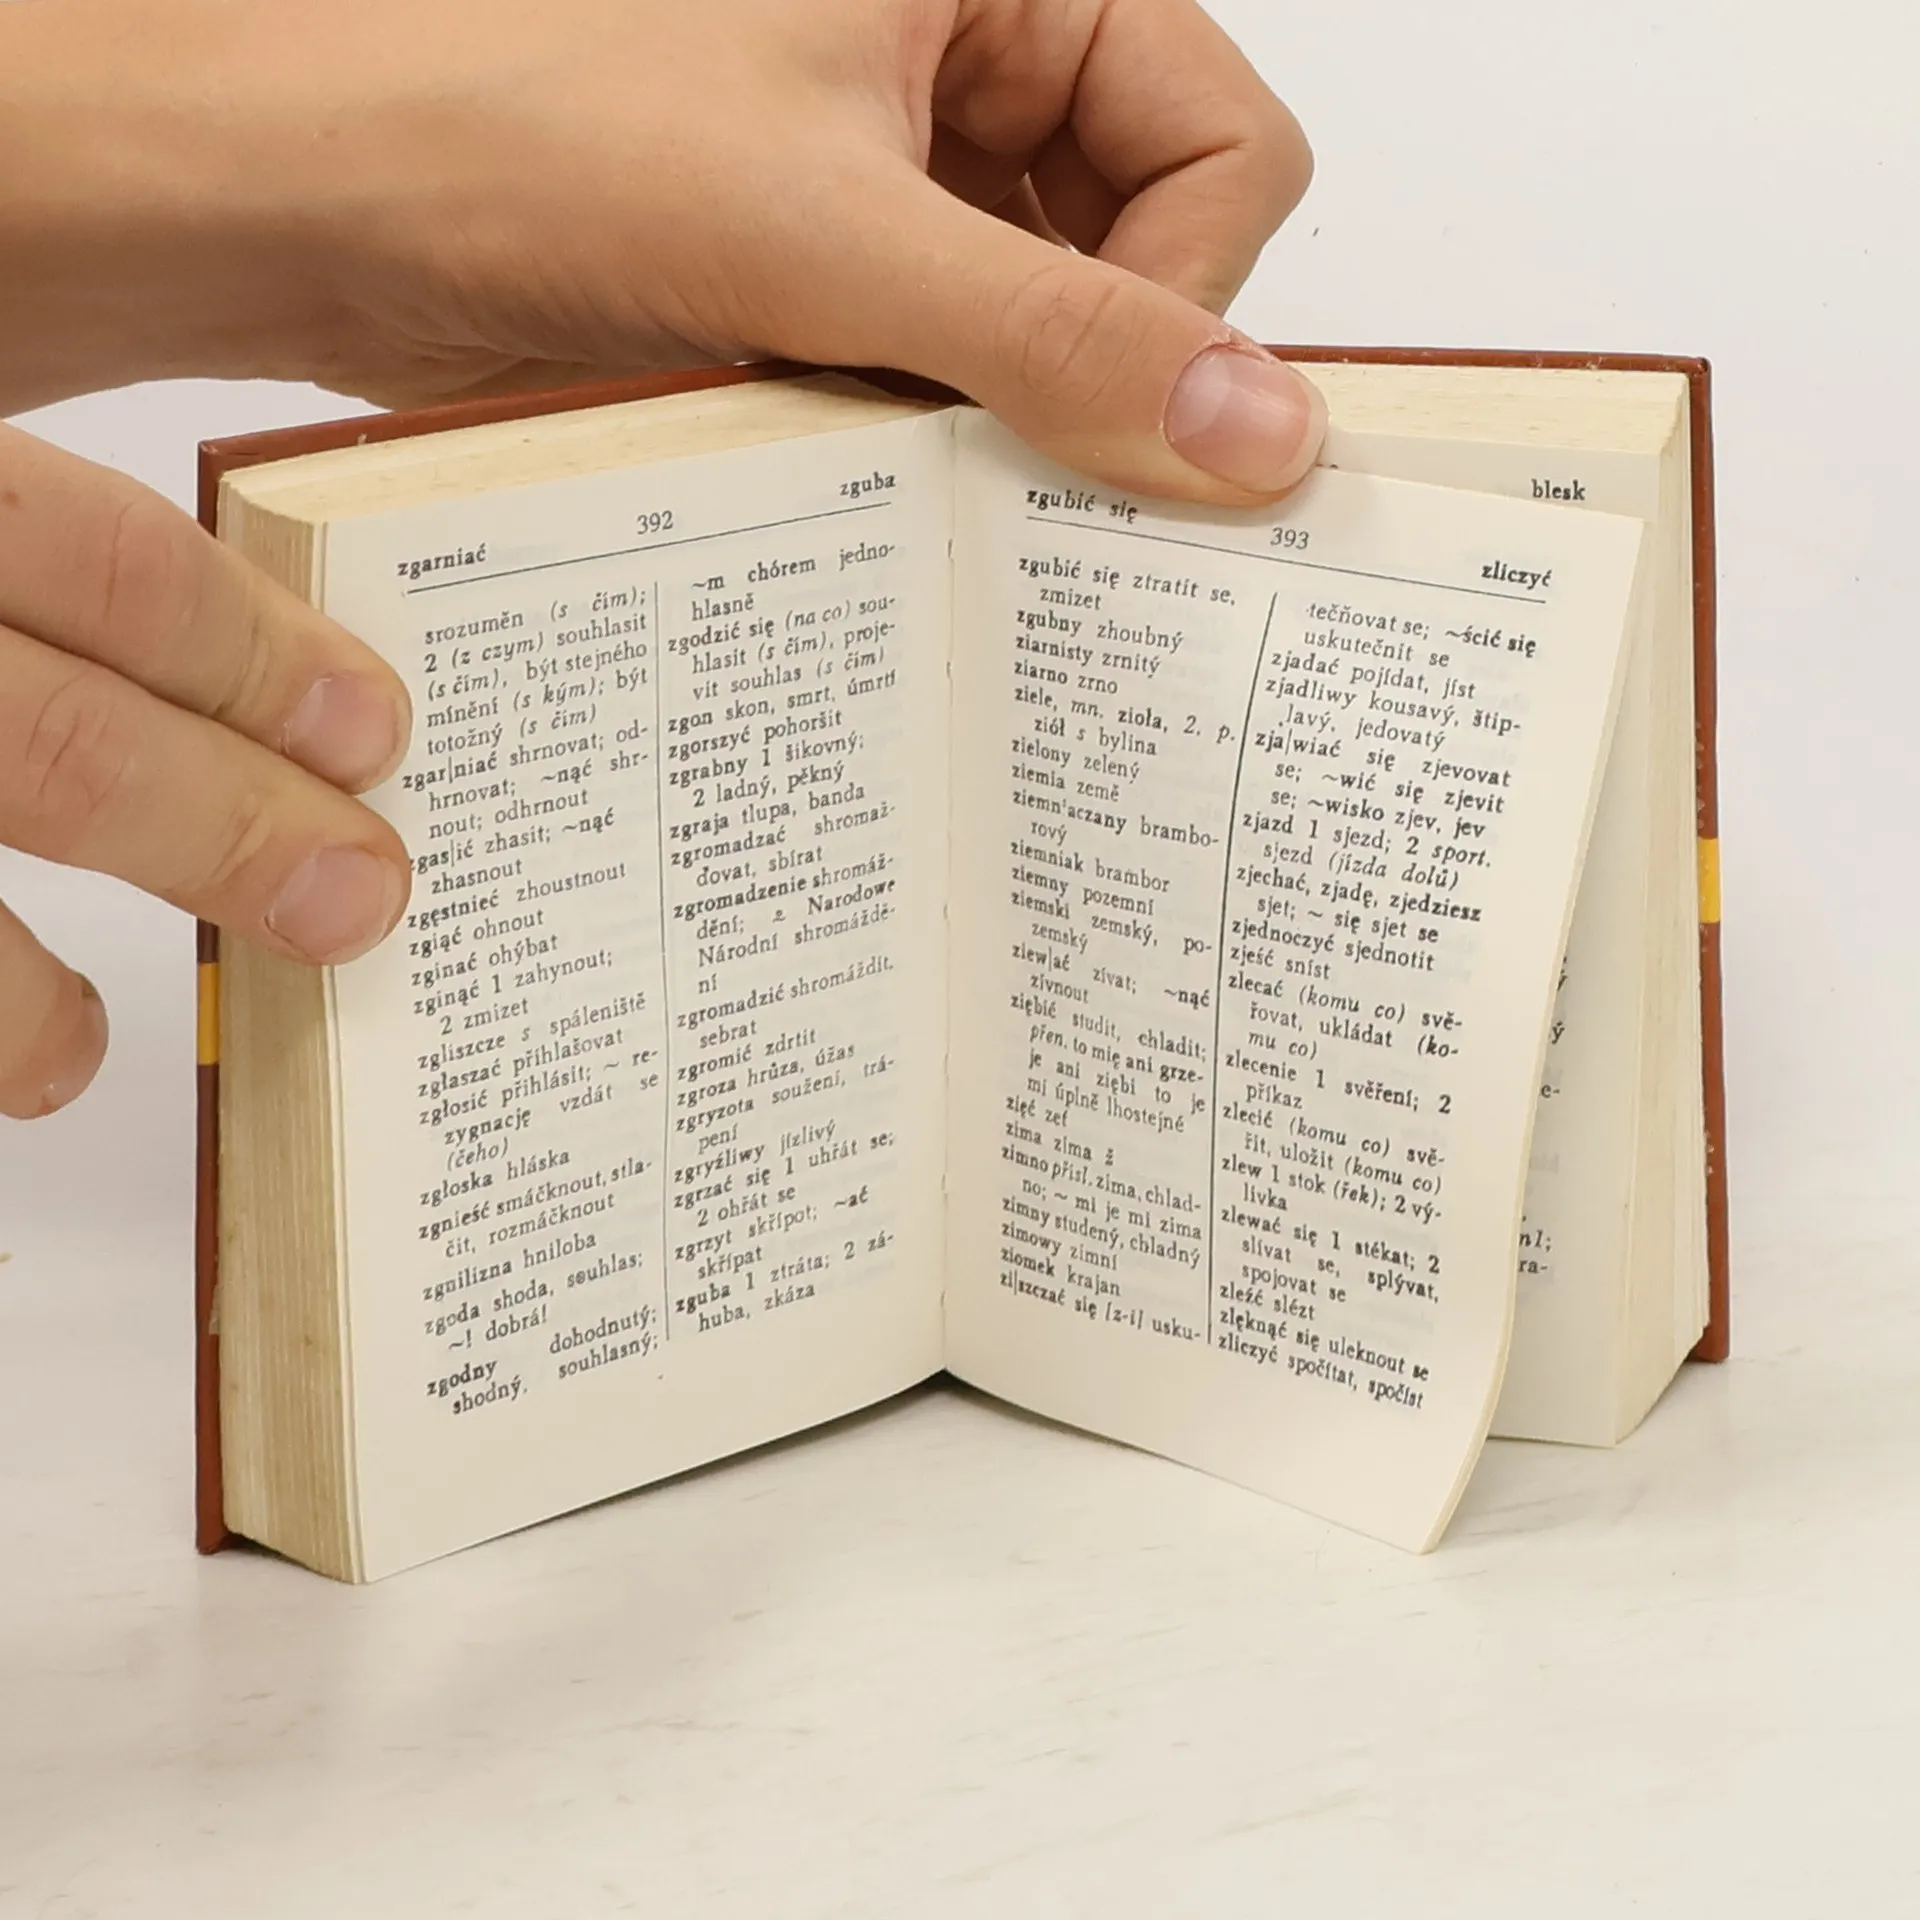 zgarniać
392
zguba
srozuměn (s čím);
2 (z czym) souhlasit
(s čím), být stejného
mínění (s kým); být
totožný (s čím)
zgar|niać shrnovat; od-
hrnovat; ~nąć shr-
nout; odhrnout
zgas|ić zhasit; ~nąć
zhasnout
zgęstnieć zhoustnout
zgiąć ohnout
zginać ohýbat
zginąć 1 zahynout;
2 zmizet
zgliszcze s spáleniště
zgłaszać přihlašovat
zgłosić přihlásit; ~ re-
zygnację vzdát se
(čeho)
zgłoska hláska
zgnieść smáčknout, stla-
čit, rozmáčknout
zgnilizna hniloba
zgoda shoda, souhlas;
~! dobrá!
zgodny dohodnutý;
shodný, souhlasný;
~m chórem jedno-
hlasně
zgodzić się (na co) sou-
hlasit (s čím), proje-
vit souhlas (s čím)
zgon skon, smrt, úmrtí
zgorszyć pohoršit
zgrabny 1 šikovný;
2 ladný, pěkný
zgraja tlupa, banda
zgromadzać shromaž-
ďovat, sbírat
zgromadzenie shromáž-
dění; Narodowe
Národní shromáždě-
ní
zgromadzić shromáždit,
sebrat
zgromić zdrtit
zgroza hrůza, úžas
zgryzota soužení, trá-
pení
zgryźliwy jízlivý
zgrzać się 1 uhřát se;
2 ohřát se
zgrzyt skřípot; ~ać
skřípat
zguba 1 ztráta; 2 zá-
huba, zkáza
zgubić się
393
zliczyć
zgubić się ztratit se,
zmizet
zgubny zhoubný
ziarnisty zrnitý
ziarno zrno
ziele, mn. zioła, 2. p.
ziół s bylina
zielony zelený
ziemia země
ziemn'aczany brambo-
rový
ziemniak brambor
ziemny pozemní
ziemski zemský, po-
zemský
ziew|ać zívat; ~nąć
zívnout
ziębić studit, chladit;
přen. to mię ani grze-
je ani ziębi to je
mi úplně lhostejné
zięć zeť
zima zima ž
zimno přísl. zima, chlad-
no; ~ mi je mi zima
zimny studený, chladný
zimowy zimní
ziomek krajan
zi|szczać się [z-i] usku-
tečňovat se; ~ścić się
uskutečnit se
zjadać pojídat, jíst
zjadliwy kousavý, štip-
lavý, jedovatý
zja|wiać się zjevovat
se; ~wić się zjevit
se; ~wisko zjev, jev
zjazd 1 sjezd; 2 sport.
sjezd (jízda dolů)
zjechać, zjadę, zjedziesz
sjet; ~ się sjet se
zjednoczyć sjednotit
zjeść sníst
zlecać (komu co) svě-
řovat, ukládat (ko-
mu co)
zlecenie 1 svěření; 2
příkaz
zlecić (komu co) svě-
řit, uložit (komu co)
zlew 1 stok (řek); 2 vý-
livka
zlewać się 1 stékat; 2
slívat se, splývat,
spojovat se
zleźć slézt
zlęknąć się uleknout se
zliczyć spočítat, spočíst
blesk